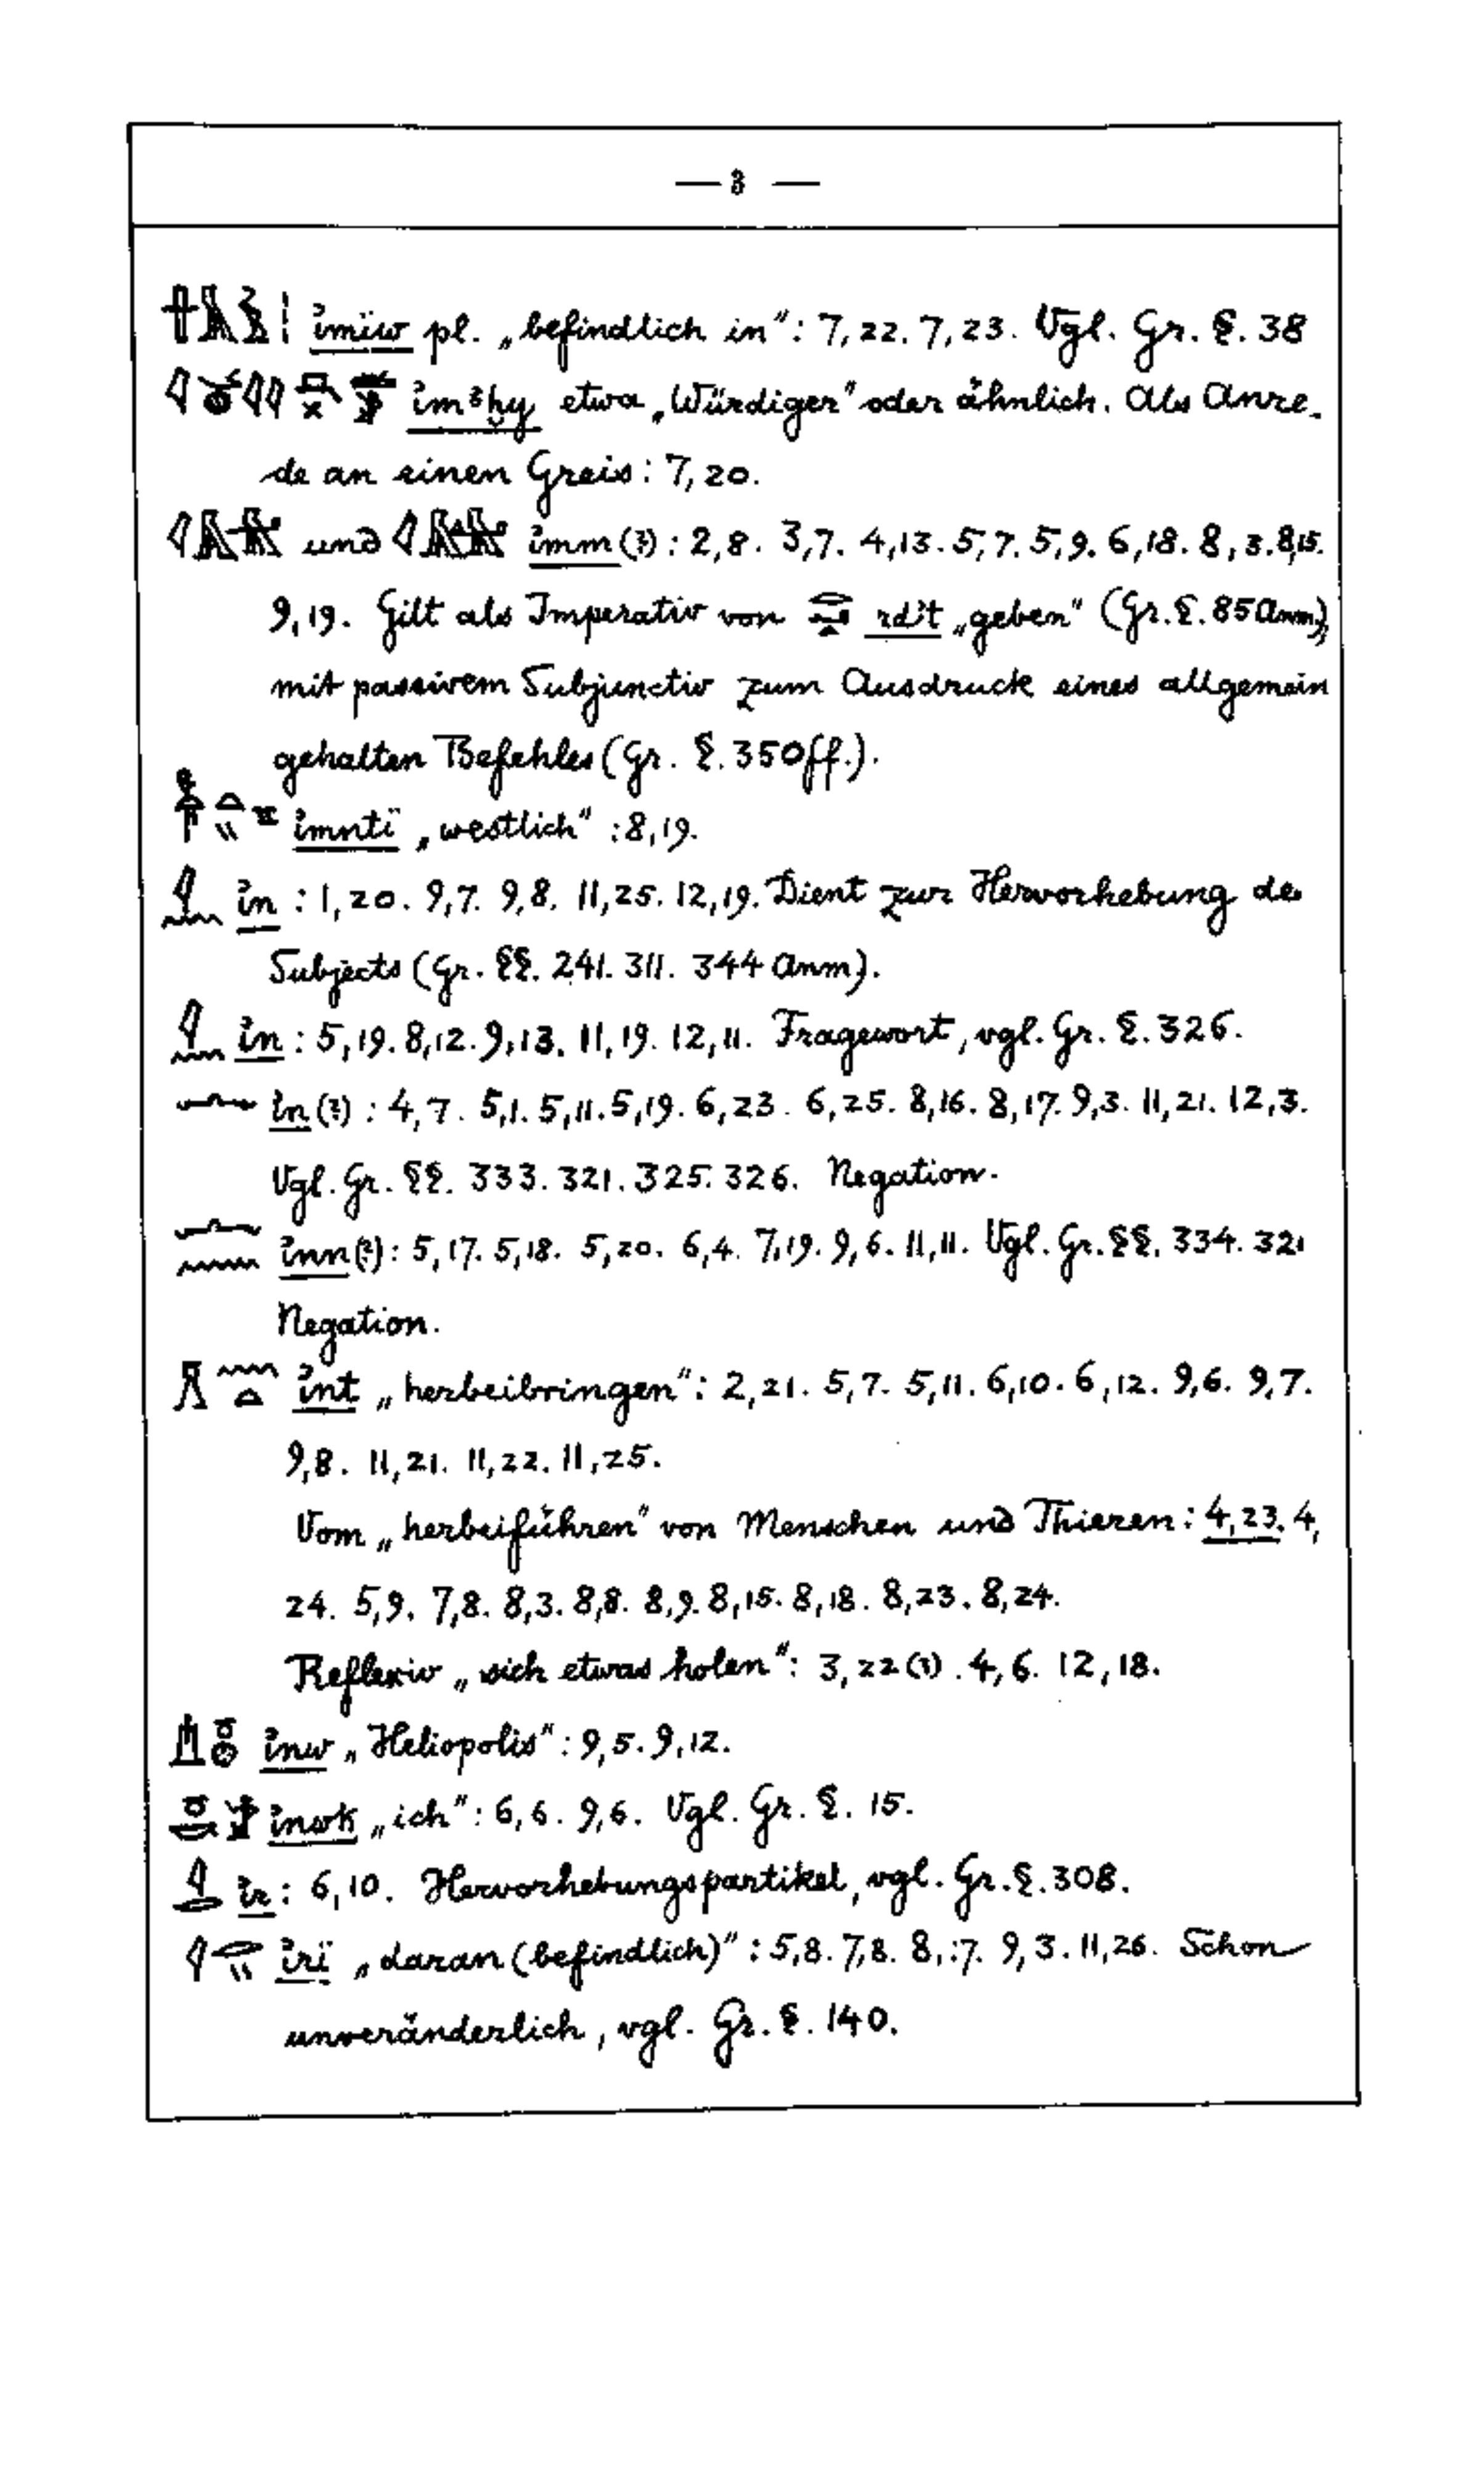 — 3 —
i҆mïw pl. „befindlich in“: 7,22. 7,23. Vgl. Gr. §. 38
i҆mꜣḫy etwa „Würdiger“ oder ähnlich. Als Anre-
de an einen Greis: 7,20.
und i҆mm (?) : 2,8. 3,7. 4,13. 5,7. 5,9. 6,18. 8,3. 8,15.
9,19. Gilt als Imperativ von rdi҆t „geben“ (Gr. §. 85 Anm.),
mit passivem Subjunctiv zum Ausdruck eines allgemein
gehalten Befehles (Gr. §. 350ff.).
i҆mntï „westlich“ : 8,19.
i҆n : 1,20. 9,7. 9,8. 11,25. 12,19. Dient zur Hervorhebung des
Subjects (Gr. §§. 241. 311. 344 Anm).
i҆n : 5,19. 8,12. 9,13. 11,19. 12,11. Fragewort, vgl. Gr. §. 326.
i҆n (?) : 4,7. 5,1. 5,11. 5,19. 6,23. 6,25. 8,16. 8,17. 9,3. 11,21. 12,3.
Vgl. Gr. §§. 333. 321. 325. 326. Negation.
i҆nn (?) : 5,17. 5,18. 5,20. 6,4. 7,19. 9,6. 11,11. Vgl. Gr. §§. 334. 321
Negation.
i҆nt „herbeibringen“: 2,21. 5,7. 5,11. 6,10. 6,12. 9,6. 9,7.
9,8. 11,21. 11,22. 11,25.
Vom „herbeiführen“ von Menschen und Thieren: 4,23. 4,
24. 5,9. 7,8. 8,3. 8,8. 8,9. 8,15. 8,18. 8,23. 8,24.
Reflexiv „sich etwas holen“: 3,22 (?). 4,6. 12,18.
i҆nw „Heliopolis“: 9,5. 9,12.
i҆nwk „ich“: 6,6. 9,6. Vgl. Gr. §. 15.
i҆r : 6,10. Hervorhebungspartikel, vgl. Gr. §. 308.
i҆rï „daran (befindlich)“ : 5,8. 7,8. 8,:7. 9,3. 11,26. Schon
unveränderlich, vgl. Gr. §. 140.